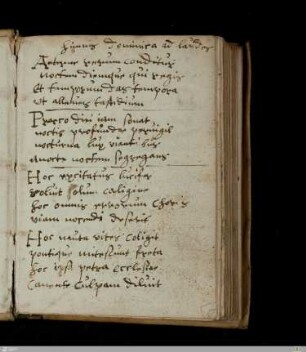 Hymnus dominica ad laudes
Aeterne rerum conditor
noctem diemque qui regis
Et temporum das tempora
ut alleuies fastidium
Praeco diei iam sonat
noctis profundae peruigil
nocturna lux viantibus
a nocte noctem segregans
Hoc excitatus lucifer
soluit polum caligine
hoc omnis errorum chorus
viam nocendi deserit
Hoc nauta vires colligit
pontique mitescunt freta
hoc ipsa petra ecclesiae
canente culpam diluit